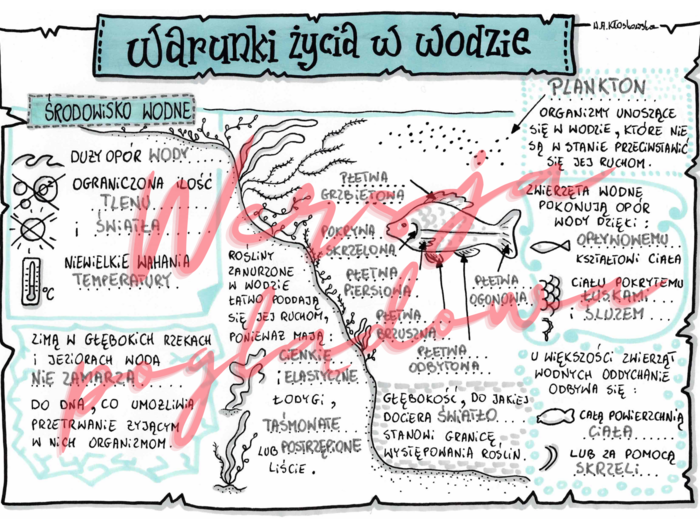 Warunki życia w wodzie
A.A.Kłoskowska
ŚRODOWISKO WODNE
DUŻY OPÓR WODY....
OGRANICZONA ILOŚĆ
TLENU......
i ŚWIATŁA.....
NIEWIELKIE WAHANIA
TEMPERATURY....
°C
ZIMĄ W GŁĘBOKICH RZEKACH
i JEZIORACH WODA
NIE ZAMARZA......
DO DNA, CO UMOŻLIWIA
PRZETRWANIE ŻYJĄCYM
W NICH ORGANIZMOM.
ROŚLINY
ZANURZONE
W WODZIE
ŁATWO PODDAJĄ
SIĘ JEJ RUCHOM,
PONIEWAŻ MAJĄ:
CIENKIE
i ELASTYCZNE
ŁODYGI,
TAŚMOWATE
LUB POSTRZĘPIONE
LIŚCIE.
PŁETWA
GRZBIETOWA
POKRYWA
SKRZELOWA
PŁETWA
PIERSIOWA
PŁETWA
BRZUSZNA
PŁETWA
ODBYTOWA
PŁETWA
OGONOWA
GŁĘBOKOŚĆ, DO JAKIEJ
DOCIERA ŚWIATŁO....
STANOWI GRANICĘ
WYSTĘPOWANIA ROŚLIN.
PLANKTON
ORGANIZMY UNOSZĄCE
SIĘ W WODZIE, KTÓRE NIE
SĄ W STANIE PRZECIWSTAWIĆ
SIĘ JEJ RUCHOM.
ZWIERZĘTA WODNE
POKONUJĄ OPÓR
WODY DZIĘKI:
OPŁYWOWEMU
KSZTAŁTOWI CIAŁA
CIAŁU POKRYTEMU
ŁUSKAMI
i ŚLUZEM
U WIĘKSZOŚCI ZWIERZĄT
WODNYCH ODDYCHANIE
ODBYWA SIĘ:
CAŁĄ POWIERZCHNIĄ
CIAŁA
LUB ZA POMOCĄ
SKRZELI
Wersja
poglądowa